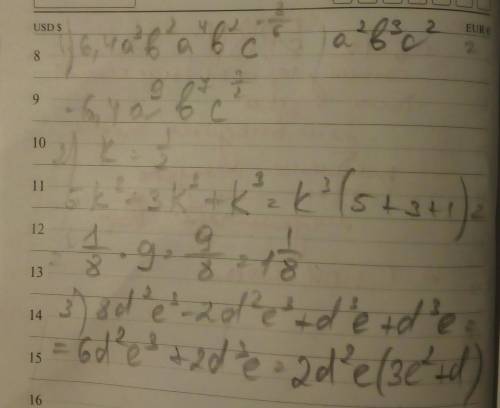 USD $ EUR €
8 1) 6,4a³b²a⁴b²c a²b³c²
9 6,4a⁹b⁷c
10 2) k = 1/2
11 5k³+3k³+k³=k³(5+3+1)=
12 1/8 · 9 = 9/8 = 1 1/8
13
14 3) 8d²e³-2d²e³+d³e+d³e=
15 =6d²e³+2d³e=2d²e(3e²+d)
16